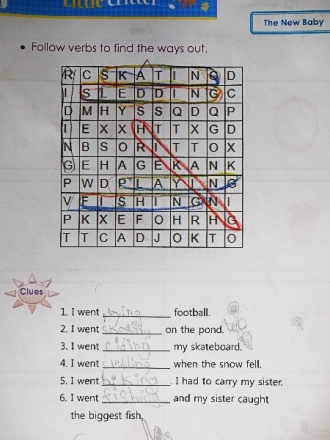 Little Critter
The New Baby
Follow verbs to find the ways out.
R C S K A T I N G D
I S L E D D I N G C
D M H Y S S Q D Q P
I E X X H T T X G D
N B S O R I T T O X
G E H A G E K A N K
P W D P L A Y I N G
V F I S H I N G N I
P K X E F O H R H G
T T C A D J O K T O
Clues
1. I went playing football.
2. I went skating on the pond.
3. I went riding my skateboard.
4. I went sledding when the snow fell.
5. I went hiking. I had to carry my sister.
6. I went fishing and my sister caught
the biggest fish.